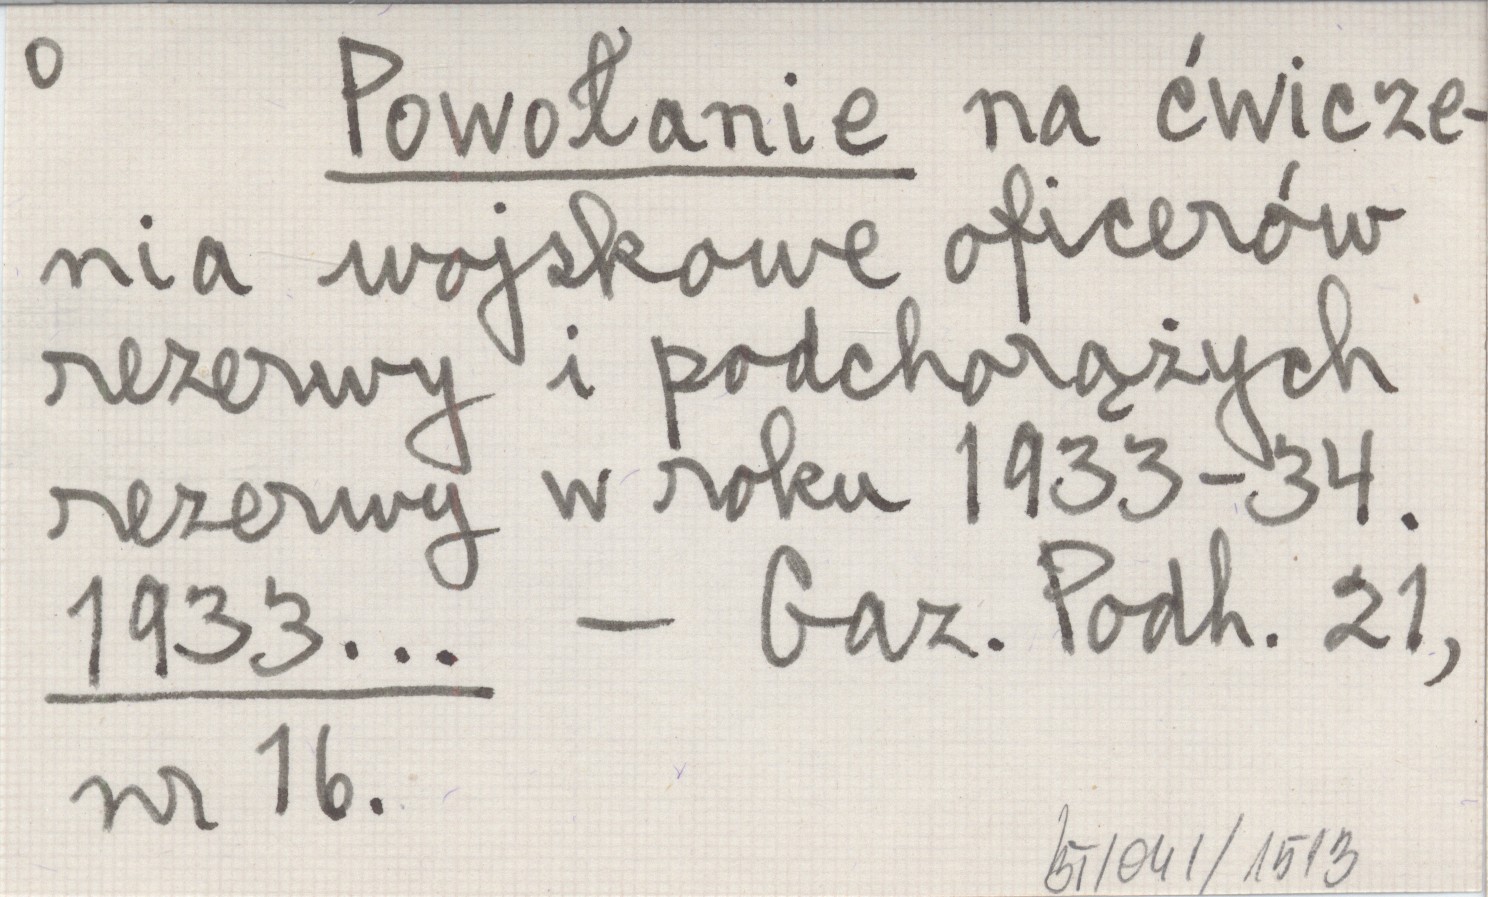 o Powołanie na ćwicze-
nia wojskowe oficerów
rezerwy i podchorążych
rezerwy w roku 1933-34.
1933... — Gaz. Podh. 21,
nr 16.